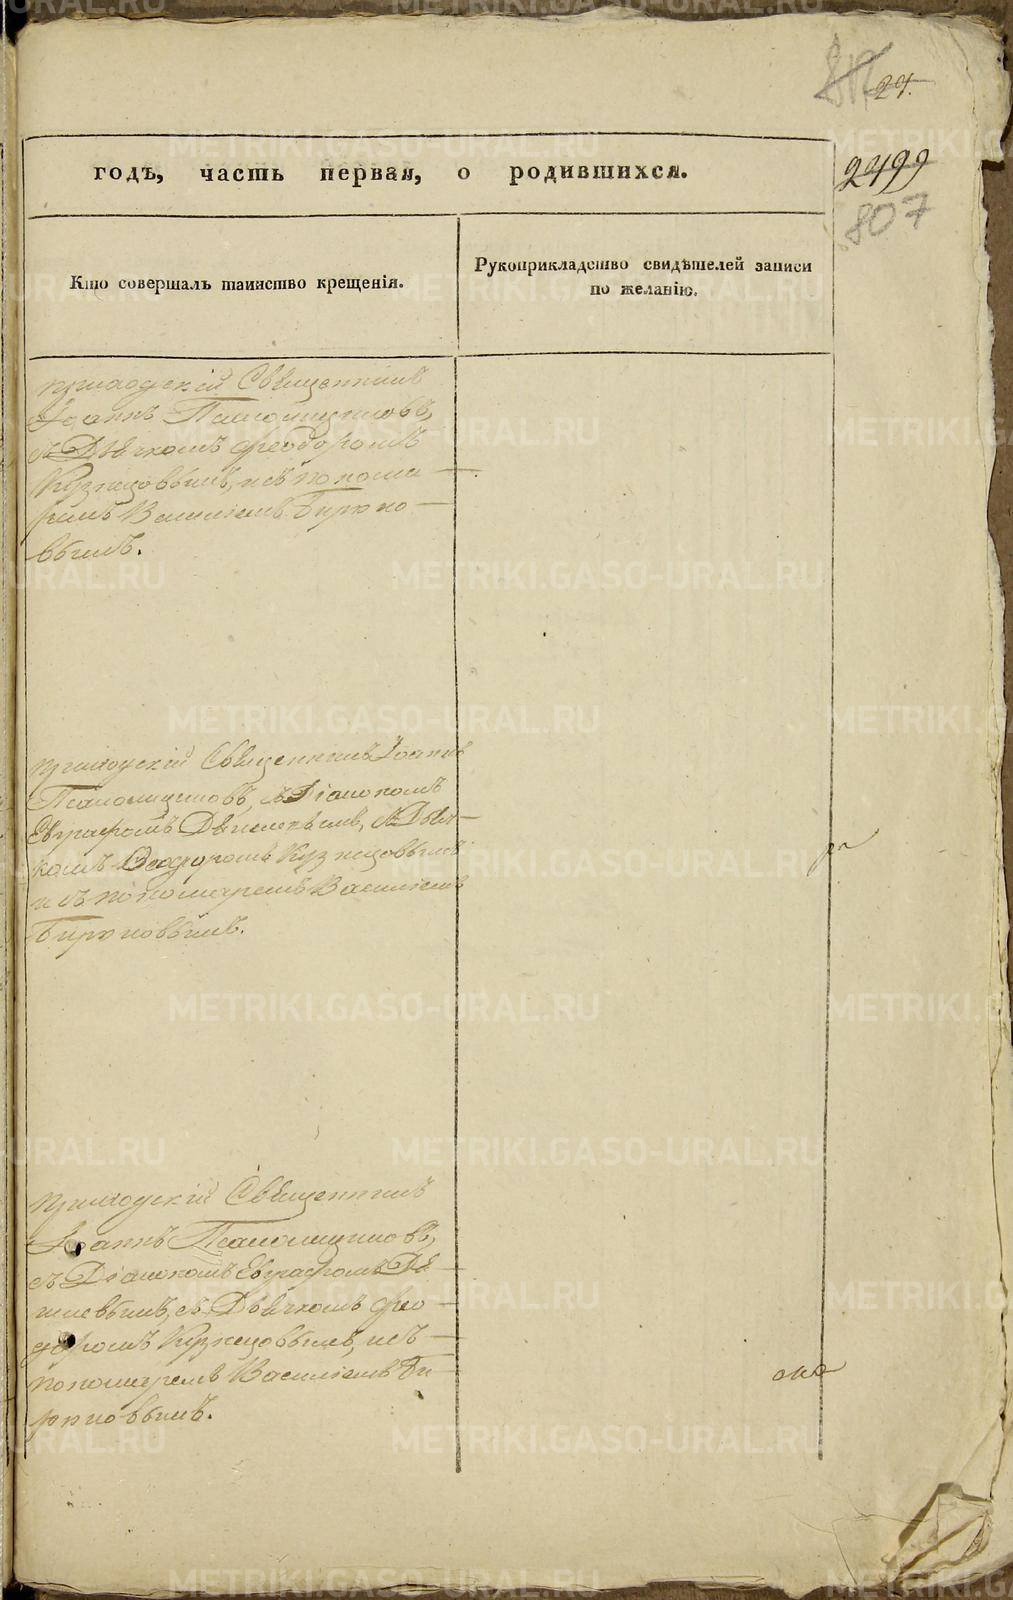 817
24.
годъ, часть первая, о родившихся.
2499
807
Кто совершалъ таинство крещенія.
Рукоприкладство свидѣтелей записи
по желанію.
приходскій Священникъ
Іоаннъ Пономарев
съ Дьячкомъ Феодоромъ
Кузнецовымъ, и съ понома-
ремъ Василіемъ Бирюко-
вымъ.
приходскій Священникъ Іоаннъ
съ Діакономъ
Евграфомъ съ Дьяч-
комъ Ѳеодоромъ Кузнецовымъ
и съ пономаремъ Василіемъ
Бирюковымъ.
приходскій Священникъ
Іоаннъ
съ Діакономъ Евграфомъ
съ Дьячкомъ Фео-
доромъ Кузнецовымъ, и съ
пономаремъ Василіемъ Би-
рюковымъ.
METRIKI.GASO-URAL.RU